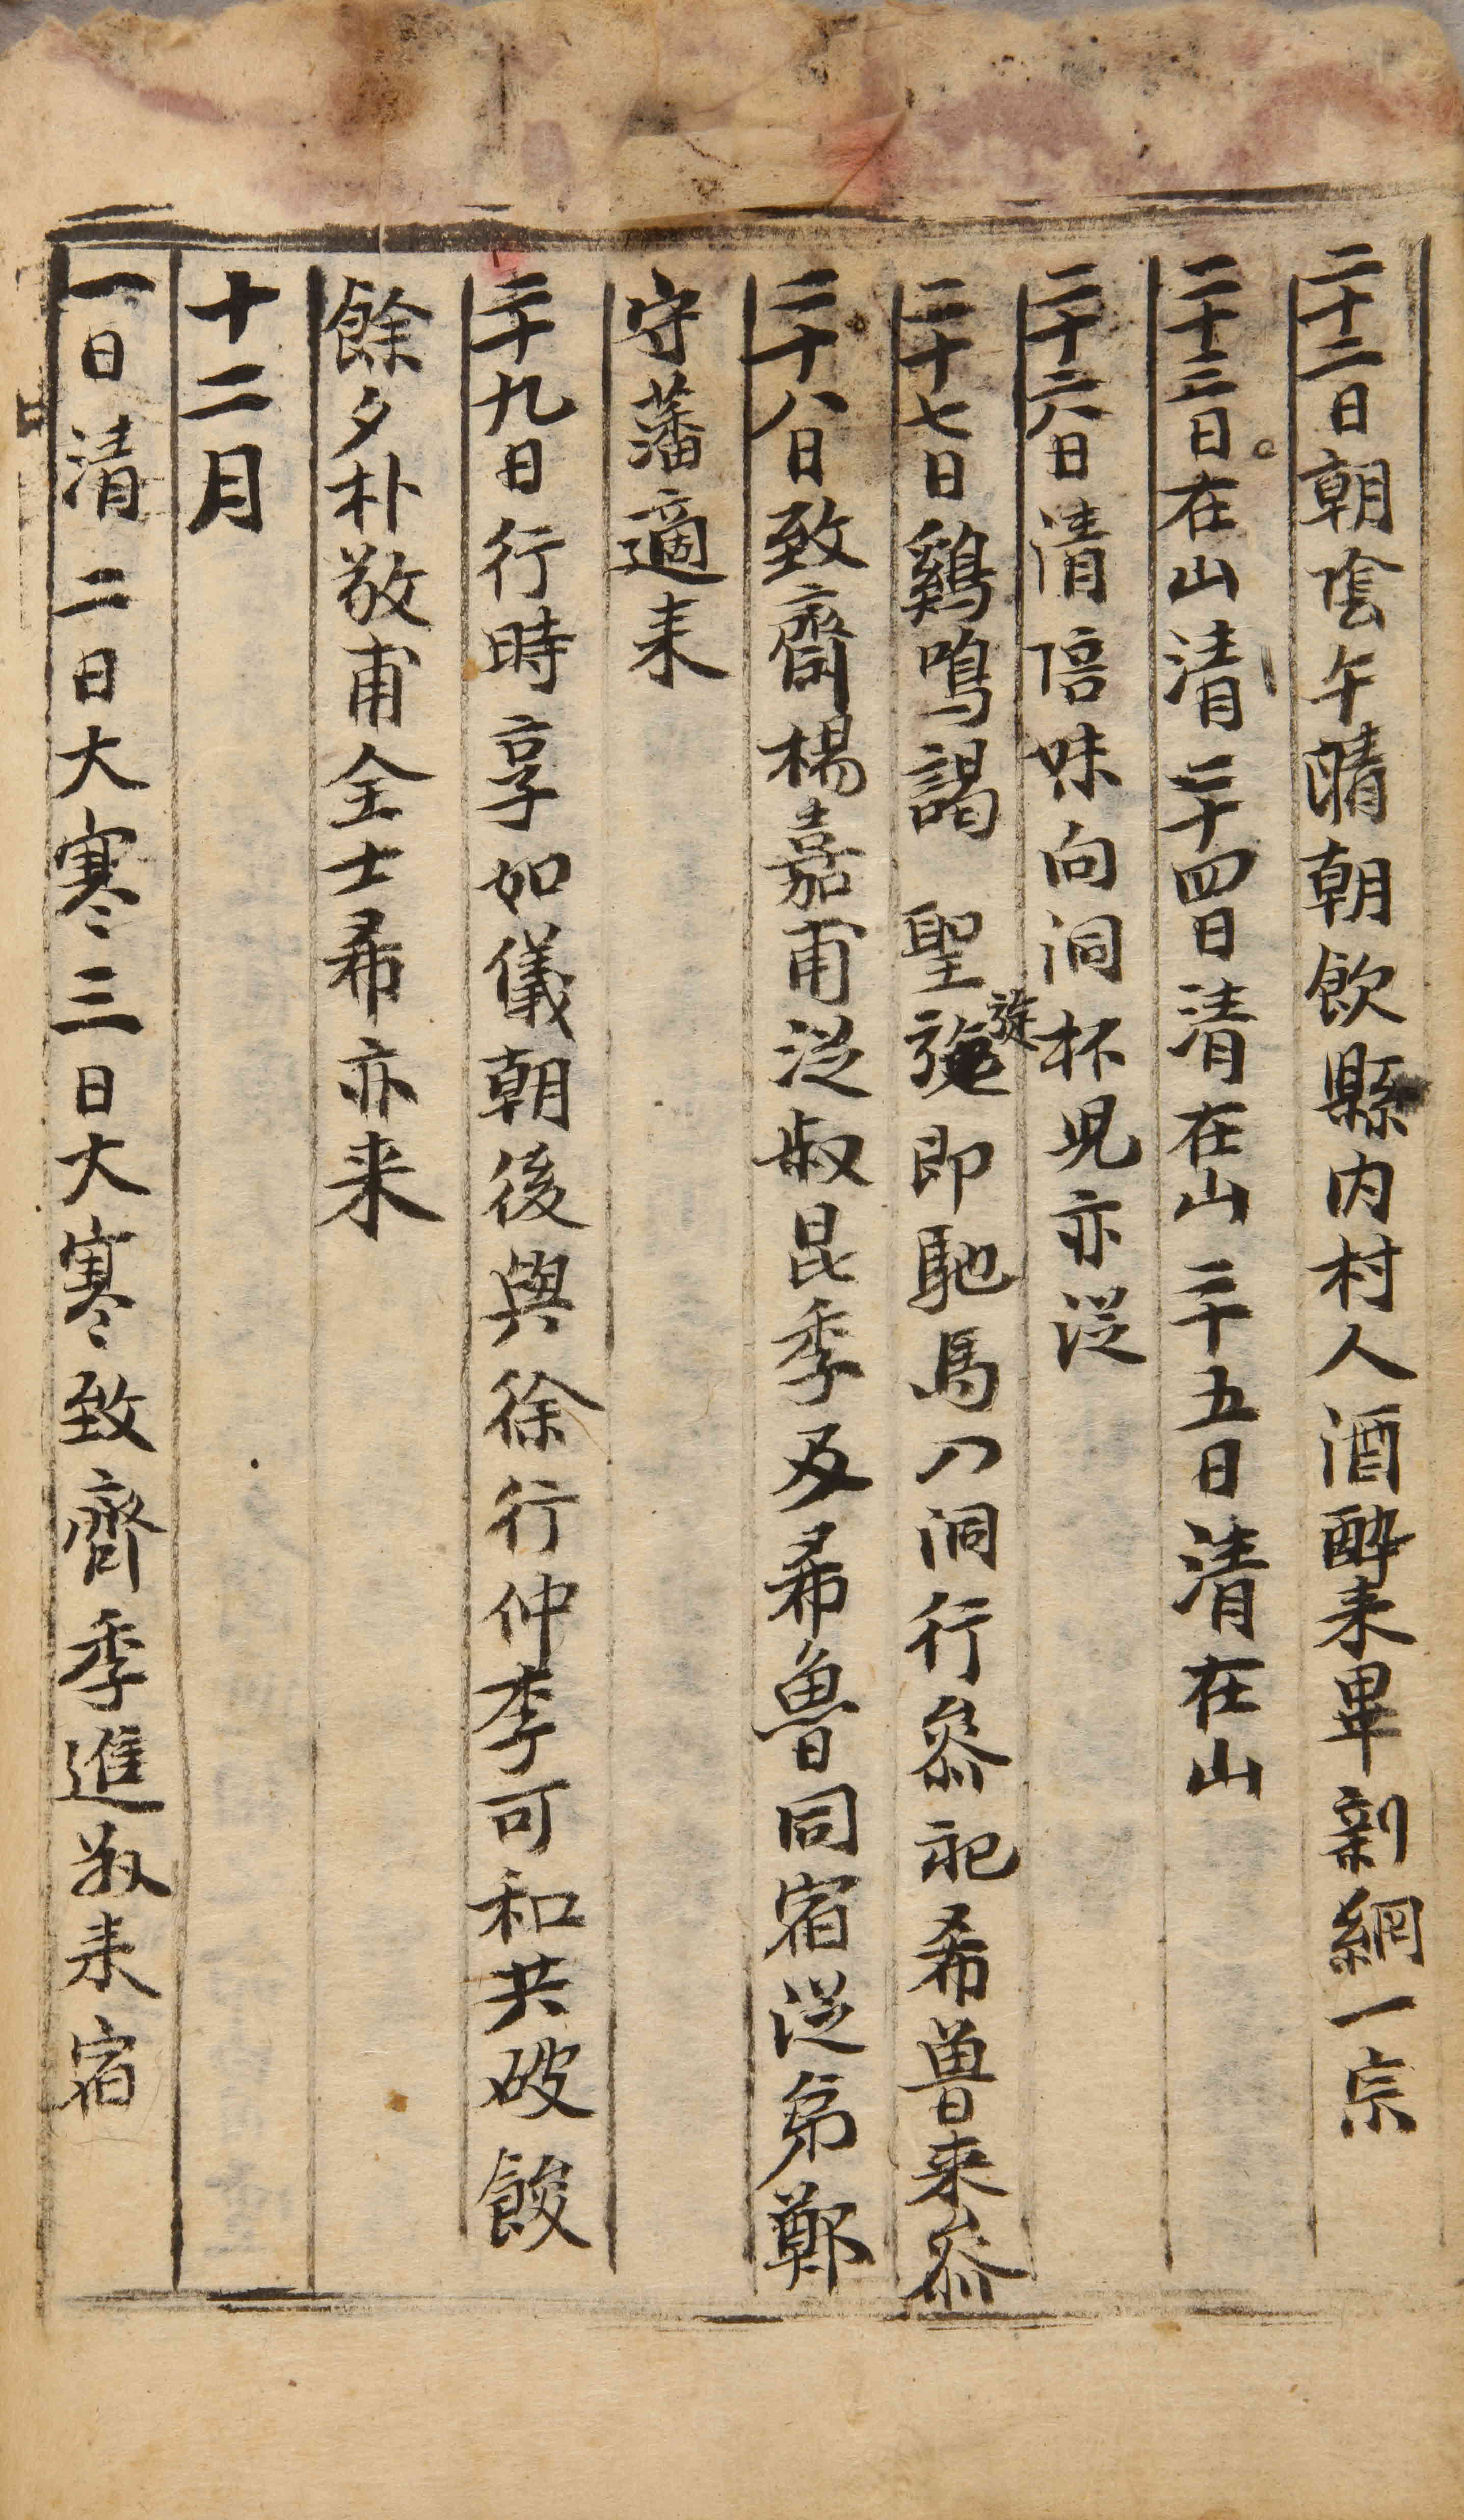 二十二日朝陰午晴朝飮縣內村人酒醉来畢新網一宗
二十三日在山淸二十四日淸在山二十五日淸在山
二十六日淸陪妹向洞杯児亦従
二十七日鷄鳴謁 聖旋旋即馳馬入洞行叅祀希曽来叅
二十八日致齋楊嘉甫従叔昆季及希魯同宿従弟鄭
守藩適来
二十九日行時享如儀朝後與徐行仲李可和共破餕
餘夕朴敬甫全士希亦来
十二月
一日淸二日大寒三日大寒致齊季進叔来宿